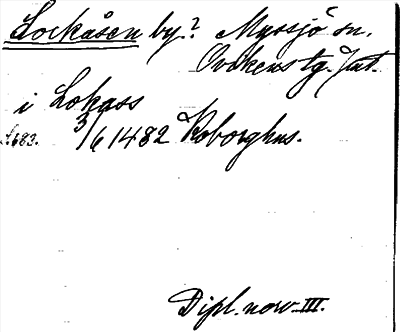 Lockåsen by.? Myssjö sn.
Ovikens tg. Jtl.
i Lokaass
S. 683. 3/6 1482 Roborghus.
Dipl. norv. III.